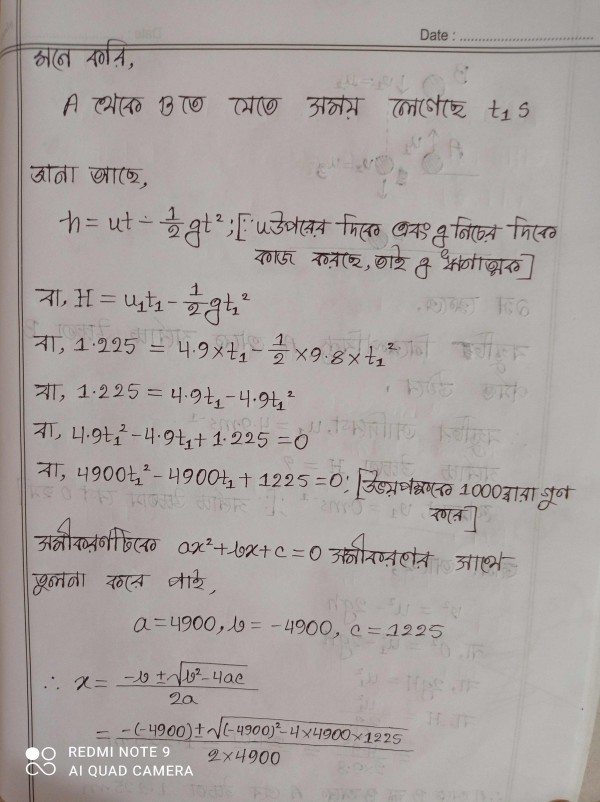 Date :
মনে করি,
A থেকে B তে যেতে সময় লেগেছে t₁ s
জানা আছে,
h = ut - 1/2 gt²; [∵ u উপরের দিকে এবং g নিচের দিকে
কাজ করছে, তাই g ঋনাত্মক]
বা, H = u₁t₁ - 1/2 gt₁²
বা, 1.225 = 4.9 × t₁ - 1/2 × 9.8 × t₁²
বা, 1.225 = 4.9t₁ - 4.9t₁²
বা, 4.9t₁² - 4.9t₁ + 1.225 = 0
বা, 4900t₁² - 4900t₁ + 1225 = 0; [উভয়পক্ষকে 1000 দ্বারা গুন
করে]
সমীকরণটিকে ax² + bx + c = 0 সমীকরণের সাথে
তুলনা করে পাই,
a = 4900, b = -4900, c = 1225
∴ x = (-b ± √(b² - 4ac)) / 2a
= (-(-4900) ± √((-4900)² - 4 × 4900 × 1225)) / (2 × 4900)
REDMI NOTE 9
AI QUAD CAMERA